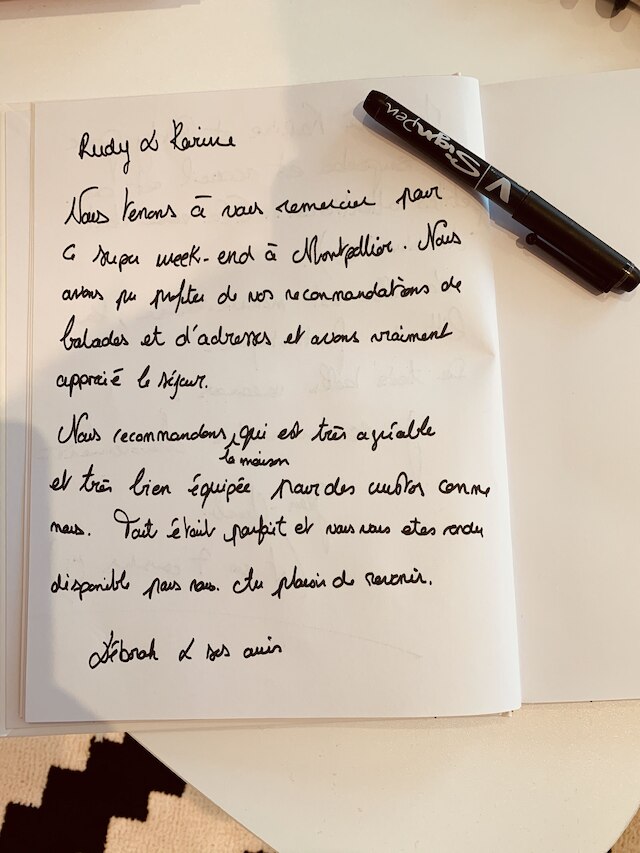 Rudy & Karine
Nous tenons à vous remercier pour
ce super week-end à Montpellier. Nous
avons pu profiter de vos recommandations de
balades et d'adresses et avons vraiment
apprécié le séjour.
Nous recommandons, qui est très agréable
la maison
et très bien équipée pour des
nous. Tout était parfait et vous vous etes rendu
disponible pour nous. Au plaisir de revenir.
Déborah & ses amis
Signpen
V